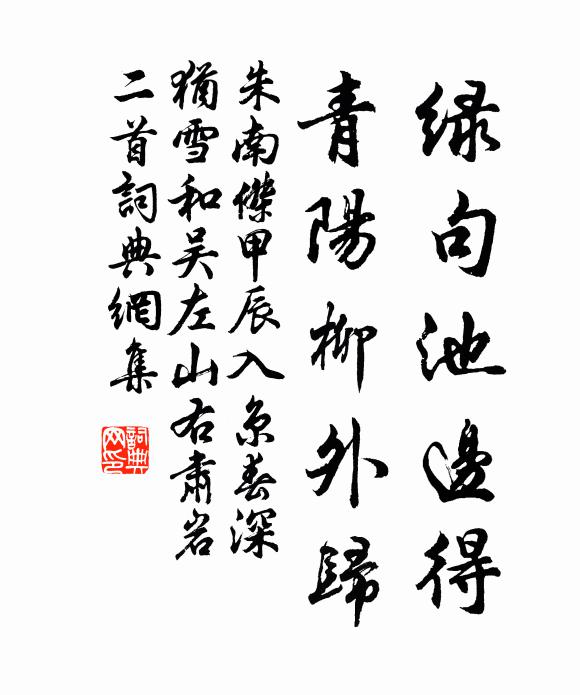 緑句池邊得
青陽柳外歸
朱南傑甲辰入京春深
猶雪和吴左山右肅岩
二首詞典網集
詞典
网印